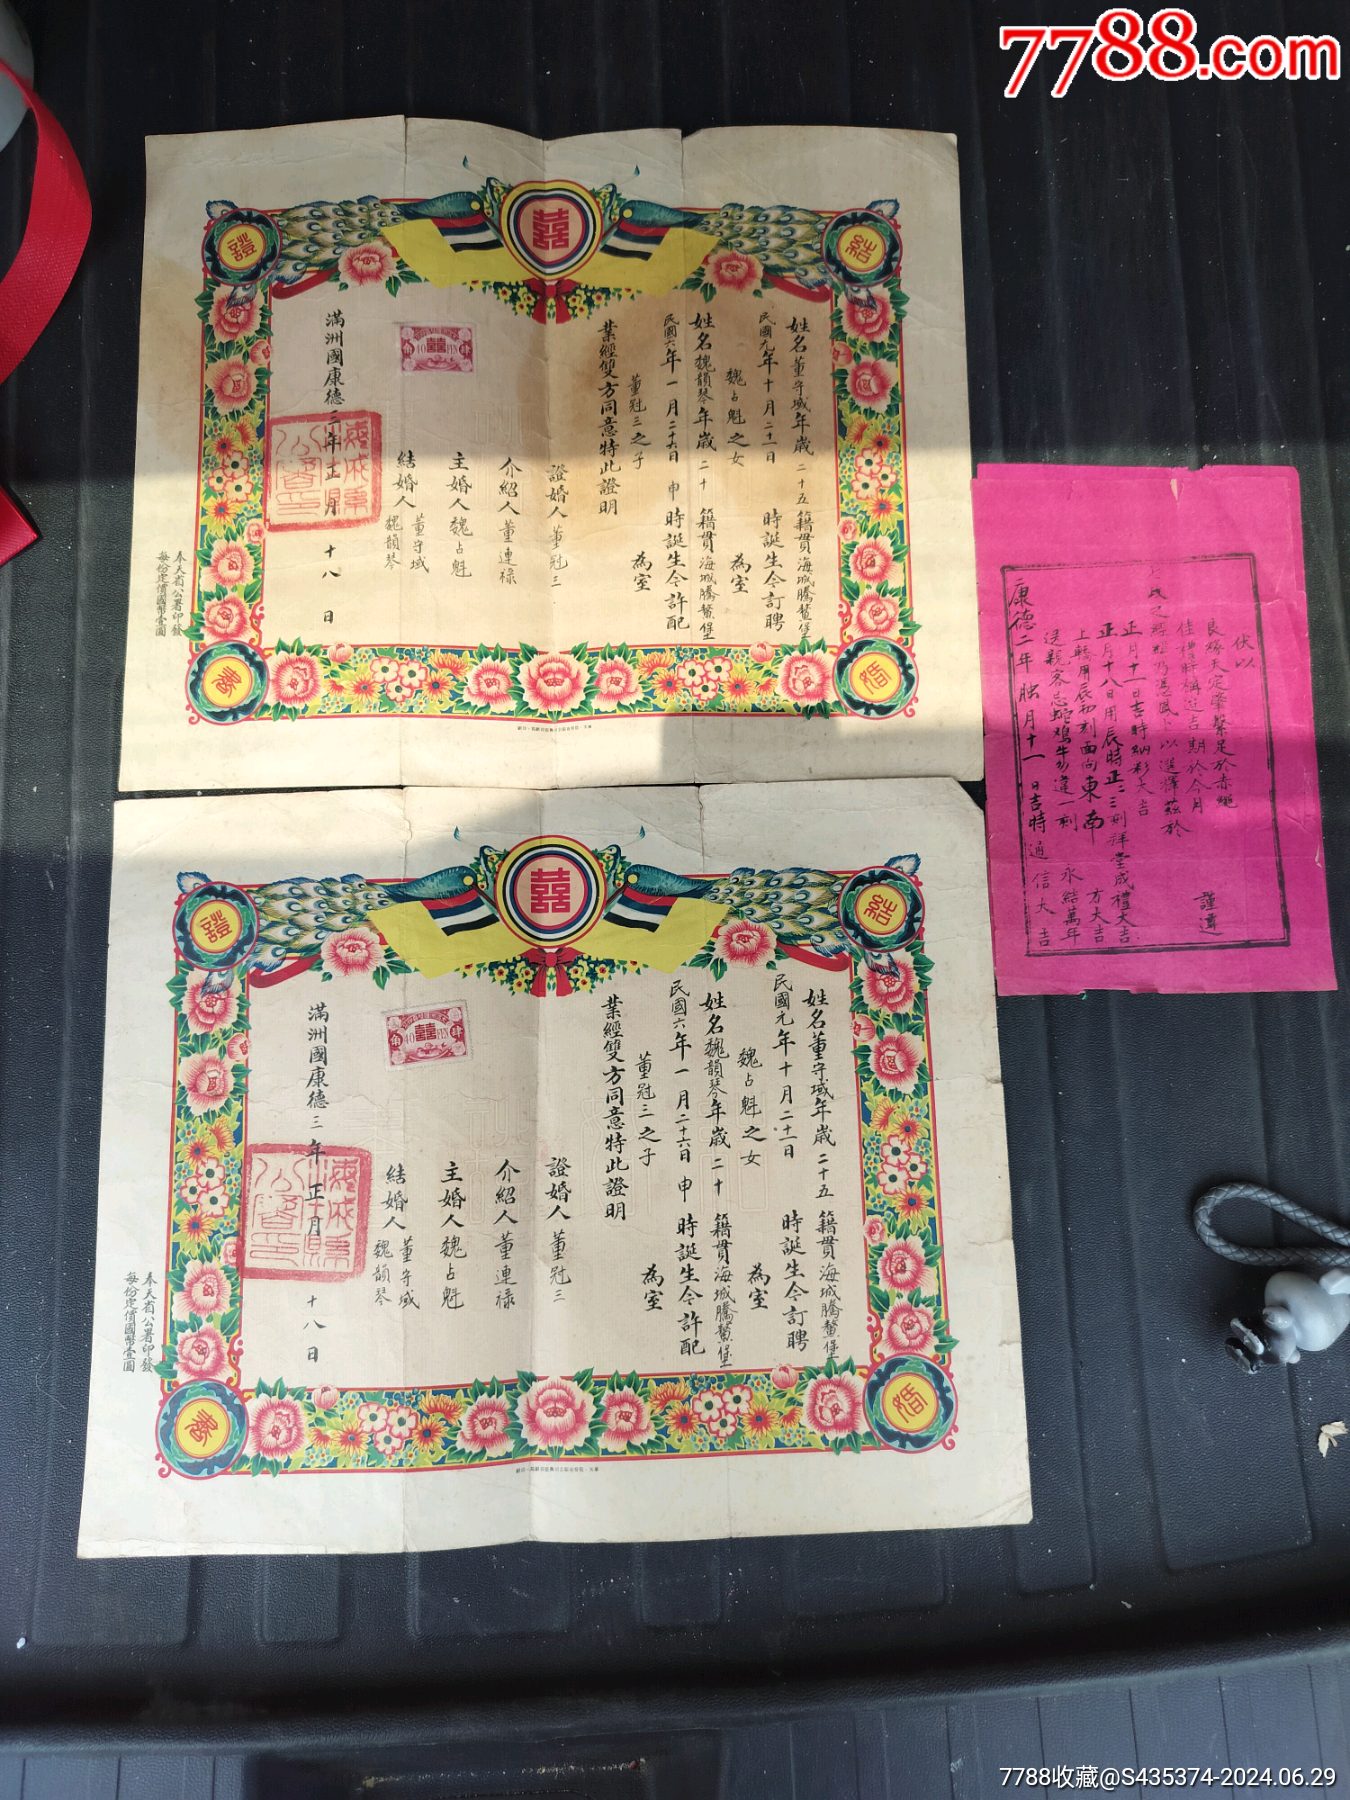 7788.com
證
囍
結
姓名董守域年歲二十五籍貫海城騰鰲堡
民國九年十月二十一日 時誕生今訂聘
魏占魁之女 為室
姓名魏韻琴年歲二十 籍貫海城騰鰲堡
民國六年一月二十六日 申 時誕生今許配
董冠三之子 為室
業經雙方同意特此證明
證婚人董冠三
介紹人董連祿
主婚人魏占魁
結婚人 董守域
魏韻琴
滿洲國康德三年正月十八日
奉天省公署印發
每份定價國幣壹圓
伏以
良緣天定肇繫足於赤繩
佳禮時稱迨吉期於今月 謹遵
之經 乃憑鳳卜以選擇茲於
正月十一日吉時納彩大吉
正月十八日用辰時正三刻拜堂成禮大吉
上轎用辰初刻面向東南 方大吉
送親客忌蛇鸡牛勿違一刻 永結萬年
康德二年 月十一 日吉時通信大吉
證
囍
結
姓名董守域年歲二十五籍貫海城騰鰲堡
民國元年十月二十一日 時誕生今訂聘
魏占魁之女 為室
姓名魏韻琴年歲二十 籍貫海城騰鰲堡
民國六年一月二十六日 申 時誕生今許配
董冠三之子 為室
業經雙方同意特此證明
證婚人董冠三
介紹人董連祿
主婚人魏占魁
結婚人 董守域
魏韻琴
滿洲國康德三年正月十八日
奉天省公署印發
每份定價國幣壹圓
7788收藏@S435374-2024.06.29